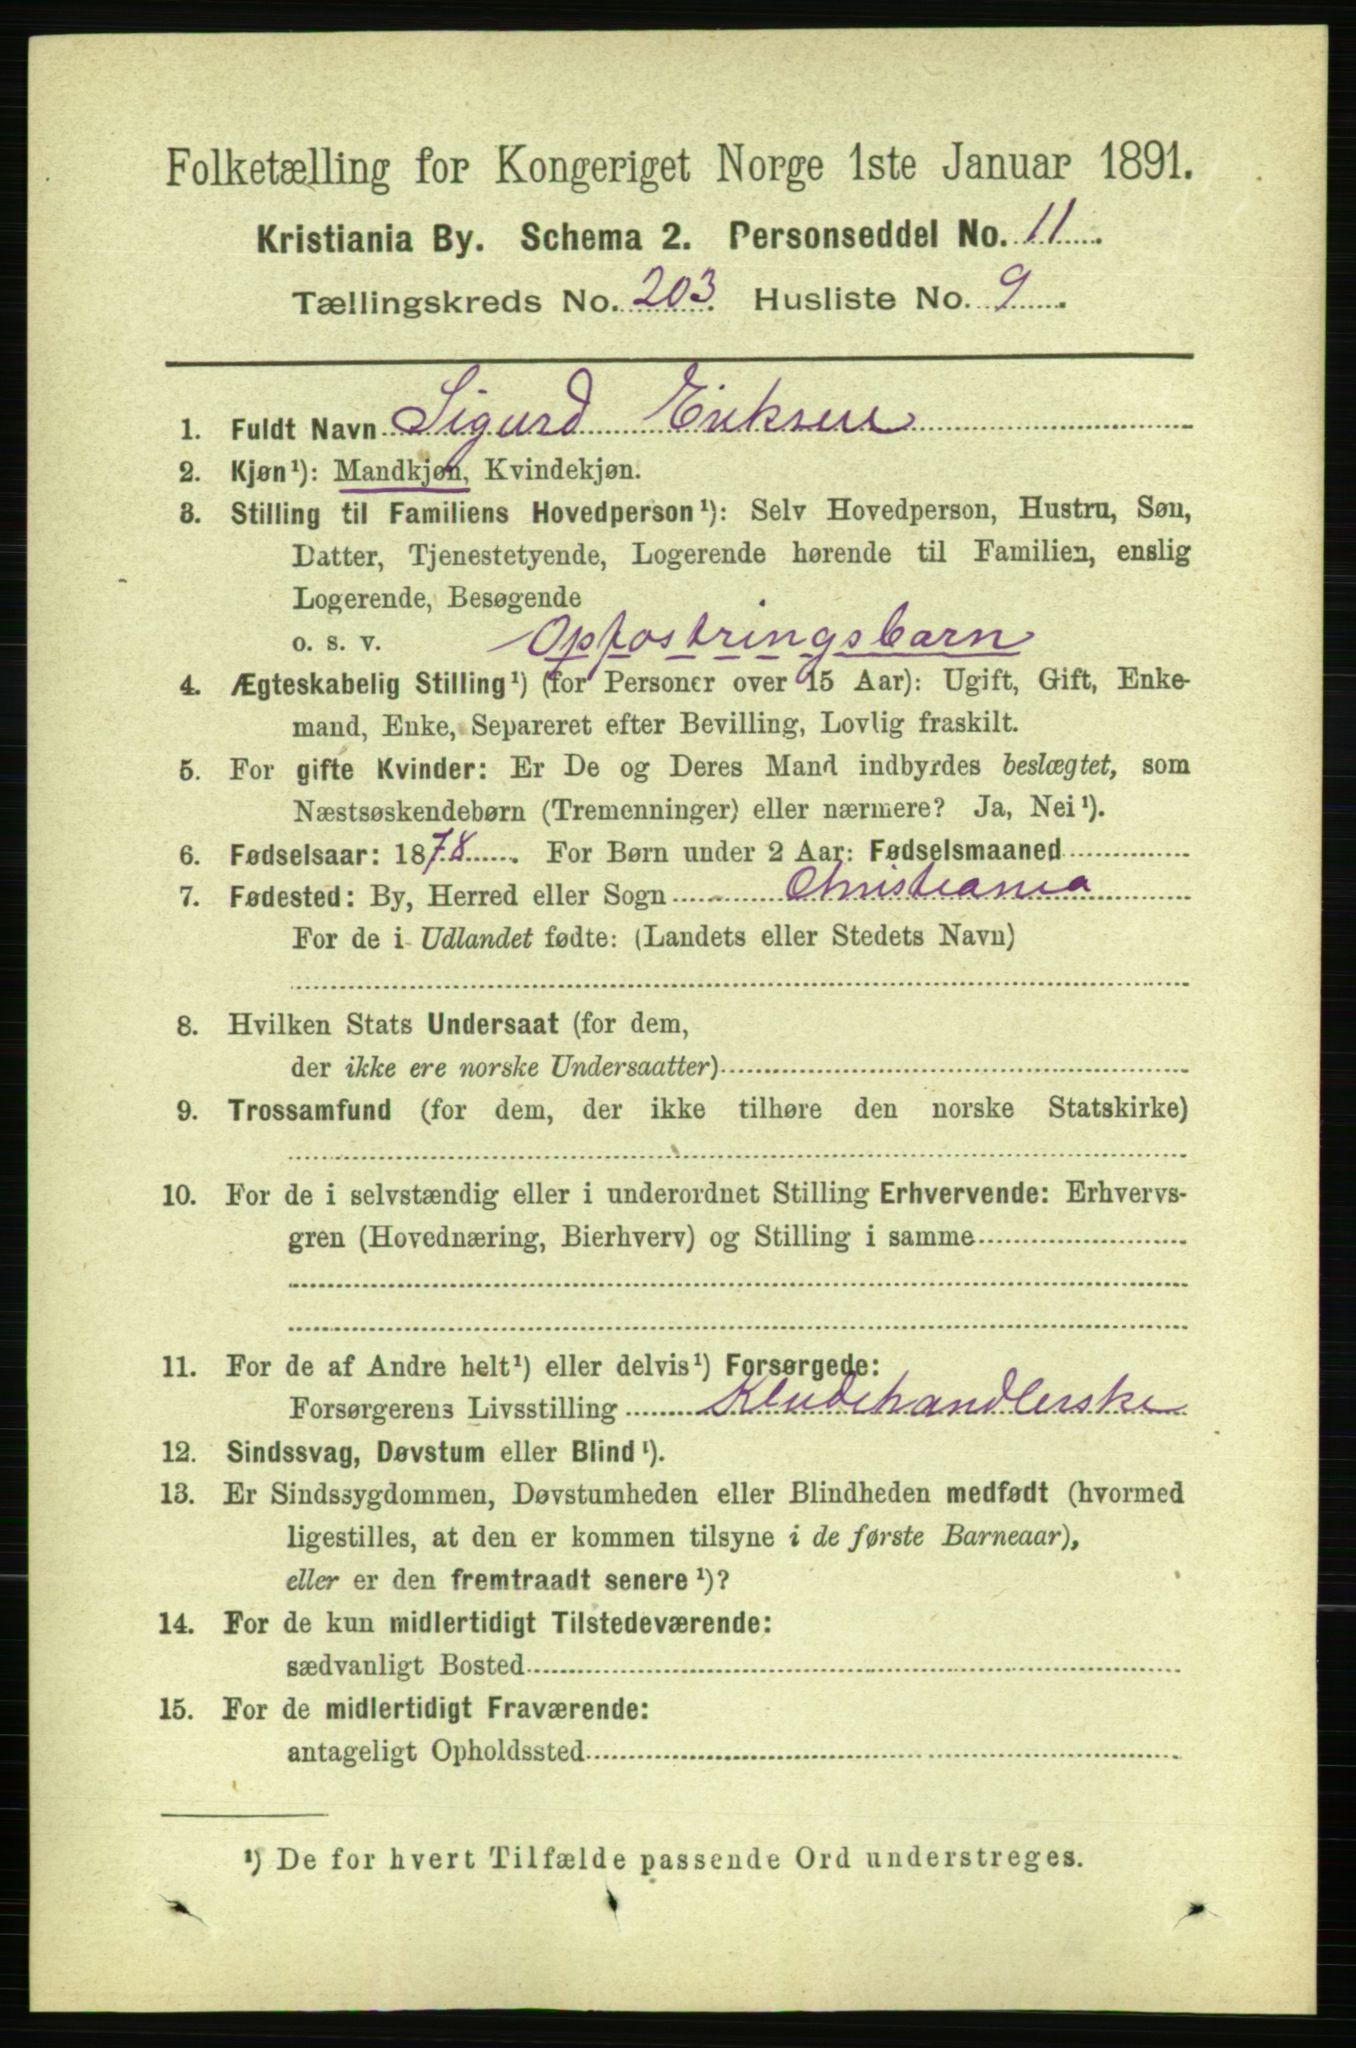 Folketælling for Kongeriget Norge 1ste Januar 1891.
Kristiania By. Schema 2. Personseddel No. 11
Tællingskreds No. 203. Husliste No. 9
1. Fuldt Navn Sigurd Eriksen
2. Kjøn¹): Mandkjøn, Kvindekjøn.
3. Stilling til Familiens Hovedperson¹): Selv Hovedperson, Hustru, Søn,
Datter, Tjenestetyende, Logerende hørende til Familien, enslig
Logerende, Besøgende
o. s. v. Oppostringsbarn
4. Ægteskabelig Stilling¹) (for Personer over 15 Aar): Ugift, Gift, Enke-
mand, Enke, Separeret efter Bevilling, Lovlig fraskilt.
5. For gifte Kvinder: Er De og Deres Mand indbyrdes beslægtet, som
Næstsøskendebørn (Tremenninger) eller nærmere? Ja, Nei¹).
6. Fødselsaar: 1878. For Børn under 2 Aar: Fødselsmaaned
7. Fødested: By, Herred eller Sogn Christiania
For de i Udlandet fødte: (Landets eller Stedets Navn)
8. Hvilken Stats Undersaat (for dem,
der ikke ere norske Undersaatter)
9. Trossamfund (for dem, der ikke tilhøre den norske Statskirke)
10. For de i selvstændig eller i underordnet Stilling Erhvervende: Erhvervs-
gren (Hovednæring, Bierhverv) og Stilling i samme
11. For de af Andre helt¹) eller delvis¹) Forsørgede:
Forsørgerens Livsstilling Kludehandlerske
12. Sindssvag, Døvstum eller Blind¹).
13. Er Sindssygdommen, Døvstumheden eller Blindheden medfødt (hvormed
ligestilles, at den er kommen tilsyne i de første Barneaar),
eller er den fremtraadt senere¹)?
14. For de kun midlertidigt Tilstedeværende:
sædvanligt Bosted
15. For de midlertidigt Fraværende:
antageligt Opholdssted
¹) De for hvert Tilfælde passende Ord understreges.